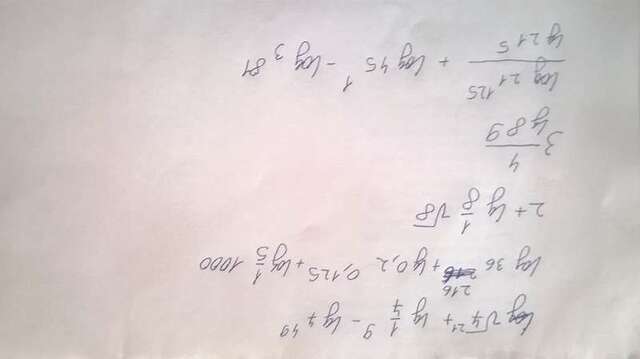 log √4 21 + lg 1/4 9 - lg 4 49
log 36 216 + lg 0,2 0,125 + log 1/5 1000
2 + lg 1/8 √8
3 4/lg 89
log 21 125 / lg 21 5 + log 45 1 - log 3 81